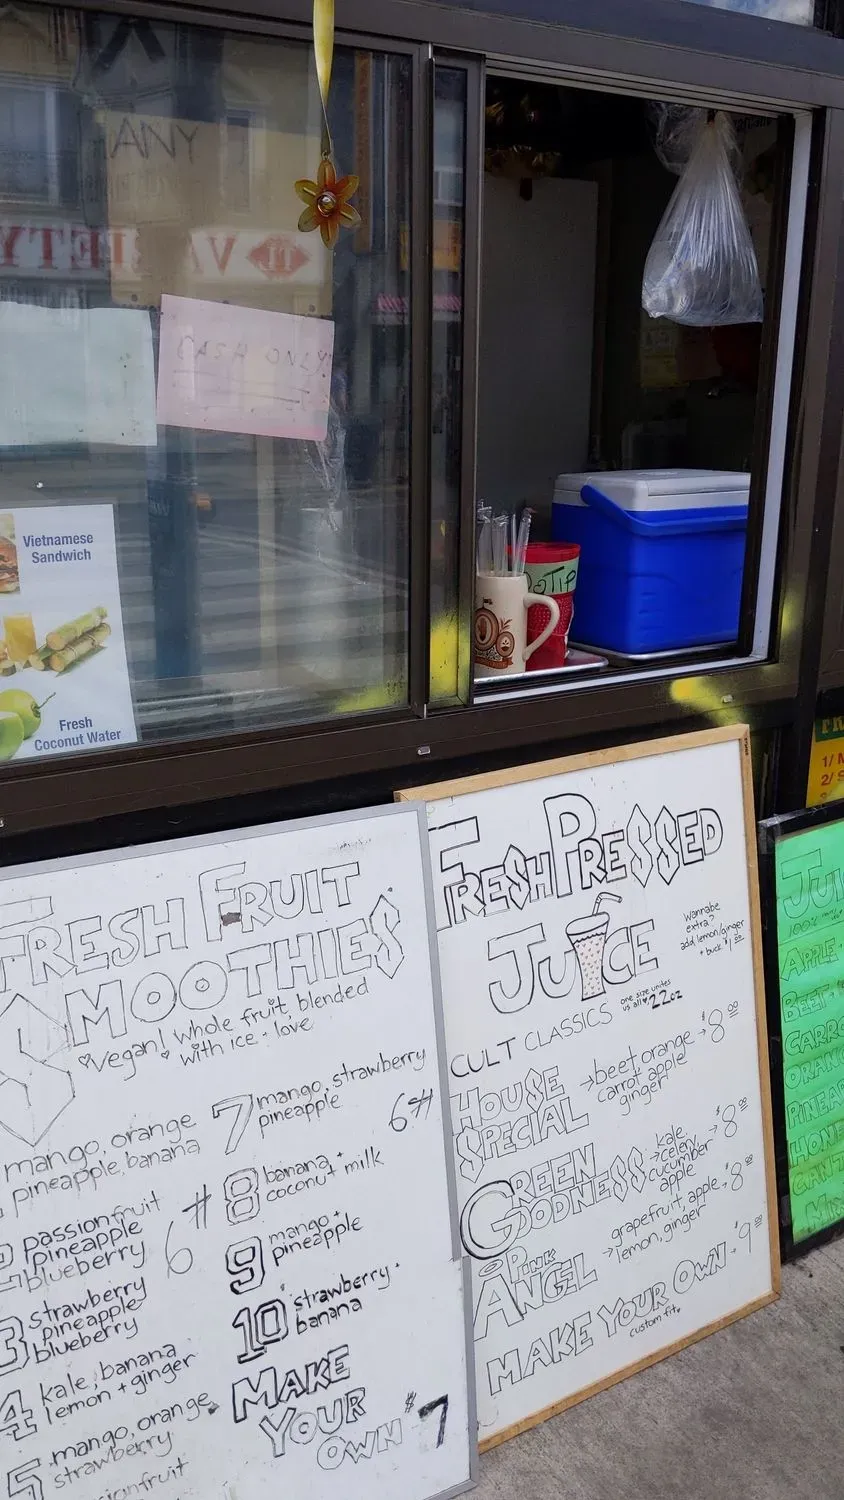 CASH ONLY
Vietnamese
Sandwich
Fresh
Coconut Water
TIP
FRESH FRUIT
SMOOTHIES
Vegan! whole fruit, blended
with ice + love
mango, orange
pineapple, banana
passionfruit
pineapple
blueberry
6
3 strawberry
pineapple
blueberry
4 kale, banana
lemon + ginger
5 mango, orange,
strawberry
7 mango, strawberry
pineapple
6
8 banana +
coconut milk
9 mango +
pineapple
10 strawberry +
banana
MAKE
YOUR
OWN $7
FRESH PRESSED
JUICE
Wannabe
extra?
add lemon/ginger
+ buck $1.00
one size unites
us all 22oz
CULT CLASSICS
HOUSE
SPECIAL
→ beet orange → $8.00
carrot apple
ginger
GREEN
GOODNESS
→ kale → $8.00
celery
cucumber
apple
PINK
ANGEL
→ grapefruit, apple → $8.00
lemon, ginger
MAKE YOUR OWN → $9.00
custom fit
1/
2/
100%
APPLE
BEET